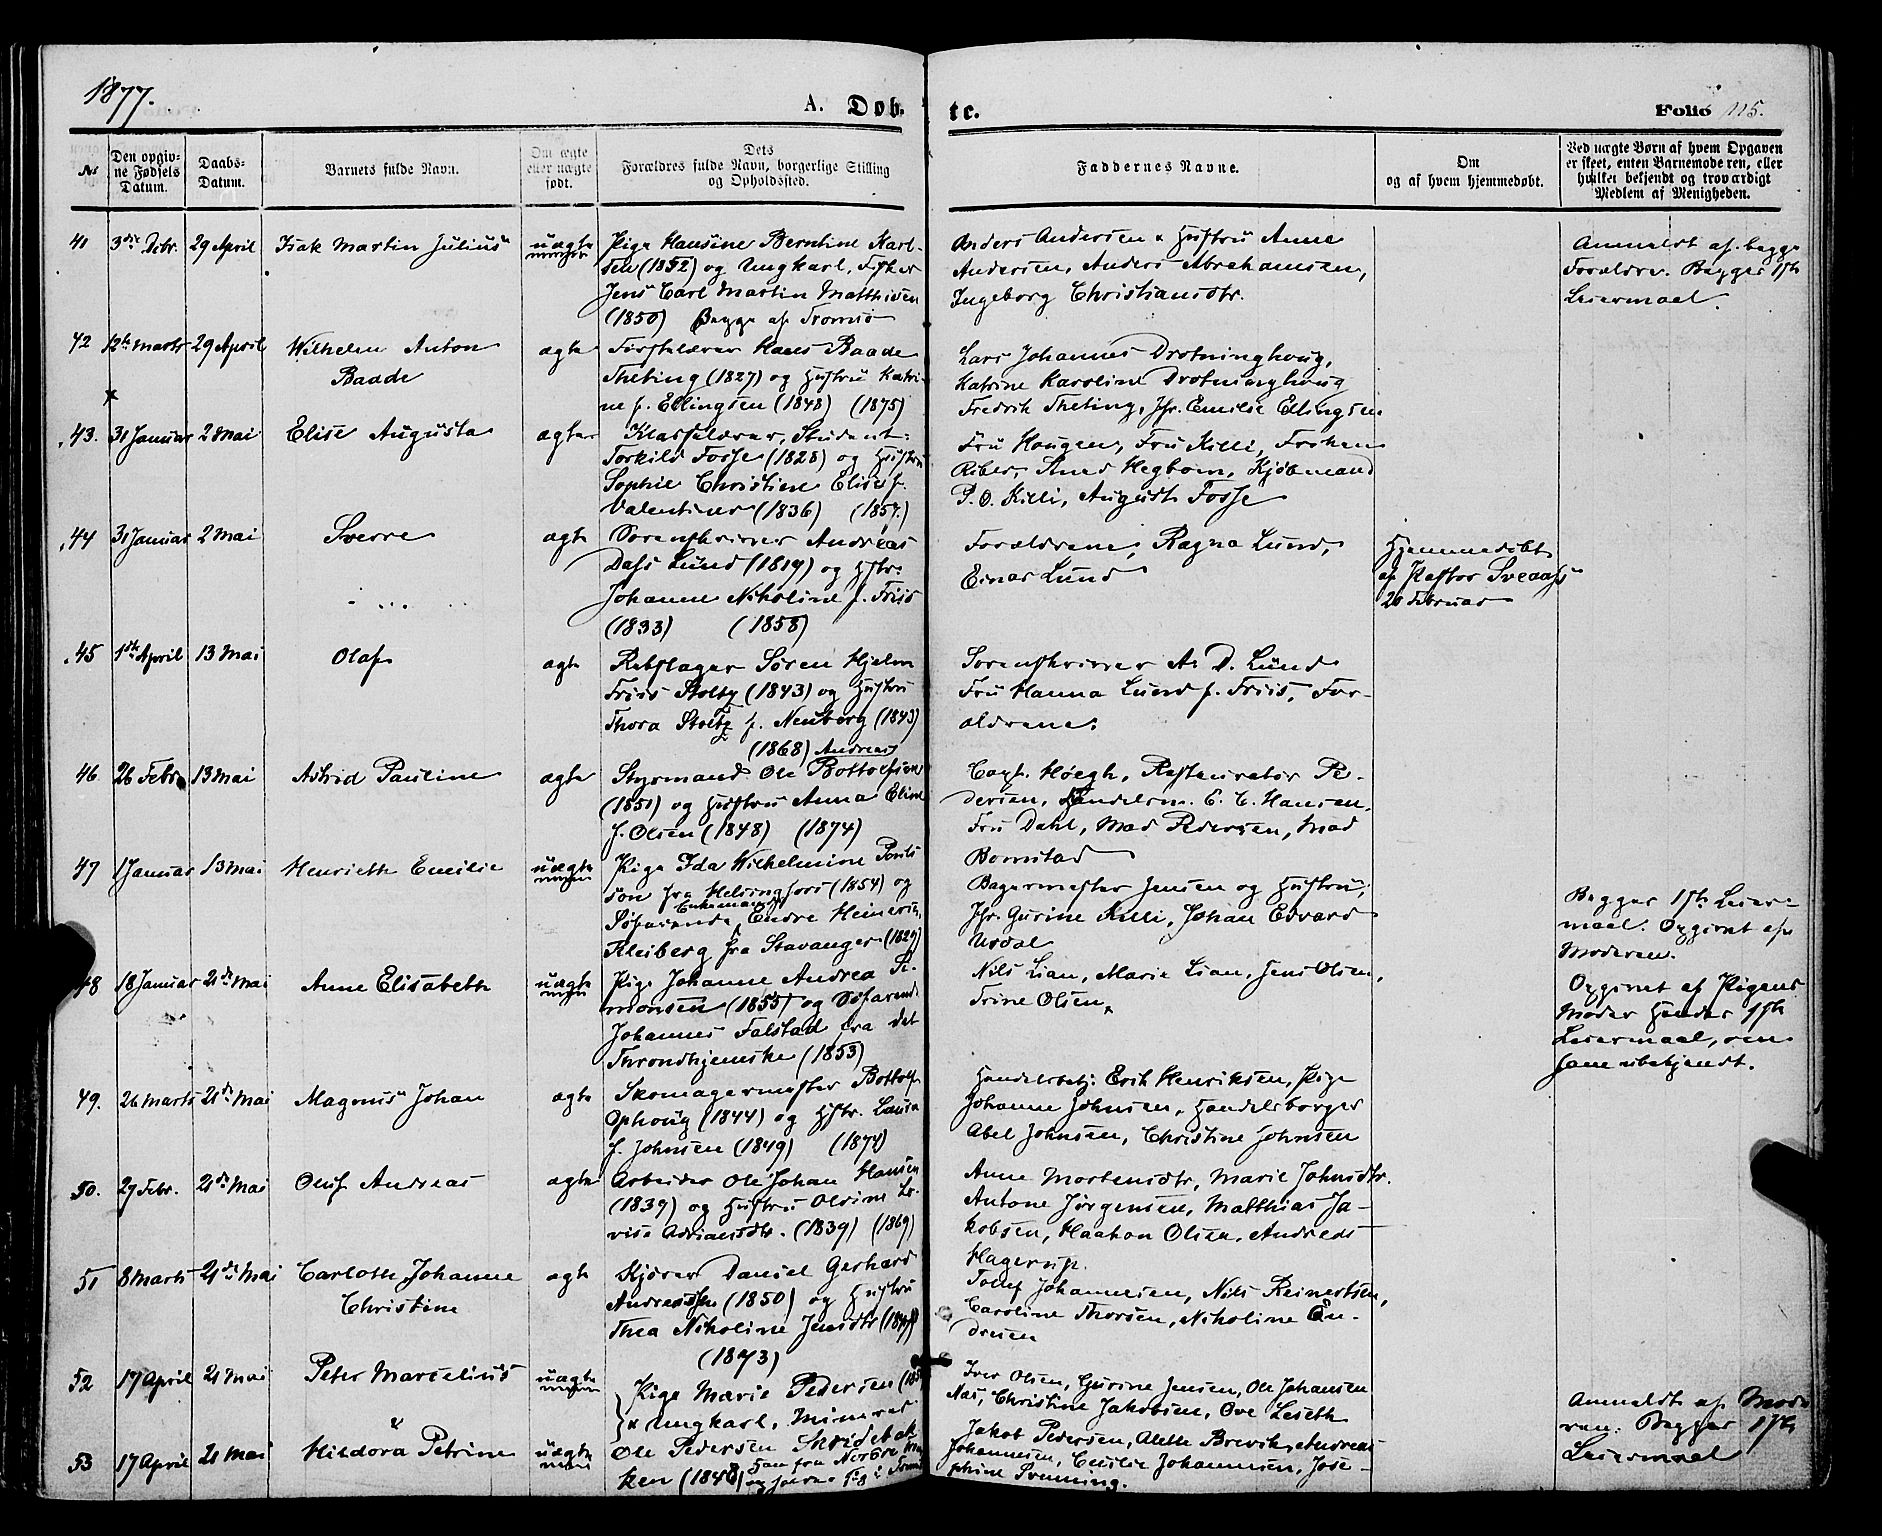 1877.
A. Døb-
te.
Folio 115.
No
Den opgiv-
ne Fødsels
Datum.
Daabs-
Datum.
Barnets fulde Navn.
Om ægte
eller uægte
født.
Dets
Forældres fulde Navn, borgerlige Stilling
og Opholdssted.
Faddernes Navne.
Om
og af hvem hjemmedøbt.
Ved uægte Børn af hvem Opgaven
er skeet, enten Barnemoderen, eller
hvilket bekjendt og troværdigt
Medlem af Menigheden.
41 3die Debr. 29 April Isak Martin Julius uægte
Pige Hansine Berntine Karl-
sen (1852) og Ungkarl, Fisker
Jens Carl Martin Matthisen
(1850) Begge af Tromsø
Anders Andersen & Hustru Anne
Andersen, Anders Abrahamsen,
Ingeborg Christiansdtr.
Anmeldt af begge
Forældre. Begges 1ste
Leiermaal.
42 12te Marts 29 April Wilhelm Anton
Baade
ægte
Førstelærer Hans Baade
Thesing (1827) og Hustru Katri-
ne f. Ellingsen (1848) (1875)
Lars Johannes Drotninghoug,
Katrine Karoline Drotninghoug
Fredrik Thesing, Jfr. Emilie Ellingsen
43. 31 Januar 2 Mai Elise Augusta ægte
Klasselærer, Student
Torkild Fosse (1828) og Hustru
Sophie Christine Elise f.
Valentiner (1836) (1857.)
Fru Hougen, Fru Killi, Frøken
Riber, Hegbom, Kjøbmand
P. O. Killi, August Fosse
44 31 Januar 2 Mai Sverre ægte
Sorenskriver Andreas
Dass Lund (1819) og Hstr.
Johanne Nikoline f. Friis
(1833) (1858)
Forældrene, Ragna Lund,
Einar Lund
Hjemmedøbt
af Pastor Sveaass
20 Februar
45 1ste April 13 Mai Olaf ægte
Rebslager Søren Hjelm
Friis Stoltz (1843) og Hustru
Thora Stoltz f. Neuberg (1843)
(1868)
Sorenskriver A. D. Lund
Fru Hanna Lund f. Friis, For-
ældrene.
46 26 Febr. 13 Mai Astrid Pauline ægte
Andreas
Styrmand Ole Bottolfsen
(1851) og Hustru Anna Eline
f. Olsen (1848) (1874)
Capt. Høegh, Restauratør Pe-
dersen, Handelsm. C. C. Hansen,
Fru Dahl, Mad Pedersen, Mad
Bomstad
47 1 Januar 13 Mai Henriette Emilie uægte
Pige Ida Wilhelmine Pouls-
son fra Helsingfors (1854) og
Enkemand
Søfarende, Endre Heinrich
Kleiberg fra Stavanger (1829)
Bagermester Jensen og Hustru,
Jfr. Gurine Killi, Johan Edvard
Urdal
Begges 1ste Leier-
maal. Opgivet af
Moderen.
48 18 Januar 21de Mai Anne Elisabeth uægte
Pige Johanne Andrea Si-
monsen (1855) og Søfarende
Johannes Falstad fra det
Throndhjemske (1853)
Nils Lian, Marie Lian, Jens Olsen,
Trine Olsen
Opgivet af Pigens
Moder Hendes 1ste
Leiermaal,
ubekjendt.
49. 26 Marts 21de Mai Magnus Johan ægte
Skomagermester Bottolf
Ophoug (1844) og Hstr. Laura
f. Johnsen (1849) (1874)
Handelsbetj. Erik Henriksen, Pige
Johanne Johnsen, Handelsborger
Abel Johnsen, Christine Johnsen
50. 27 Febr. 21de Mai Oluf Andreas ægte
Arbeider Ole Johan Hansen
(1839) og Hustru Oldine Lo-
vise Adriansdtr. (1839) (1869)
Anne Mortensdtr, Marie Johnsdtr.
Antone Jørgensen, Matthias Ja-
kobsen, Haakon Olsen, Andreas
Hagerup.
51 8 Marts 21de Mai Carlotte Johanne
Christine
ægte
Kjører Daniel Gerhard
Andreassen (1850) og Hustru
Thea Nikoline Jensdtr
(1873)
Johannesen, Nils Reinertsen,
Caroline Thorsen, Nikoline En-
dresen
52 17 April 21 Mai Peter Marselius uægte
Pige Marie Pedersen
& Ungkarl, Minerer
Iver Olsen, Gurine Jensen, Ole Johansen
Næs, Christine Jakobsen, Ove Leseth
Anmeldt af Mode-
ren. Begges 1ste
Leiermaal
&
53 17 April 21 Mai Hildora Petrine uægte
Ole Pedersen Skridebak-
ken (1848)
Jakob Pedersen, Alette Brevik, Andreas
Johannesen, Cecilie Johannesen, Jose-
phine Svenning.